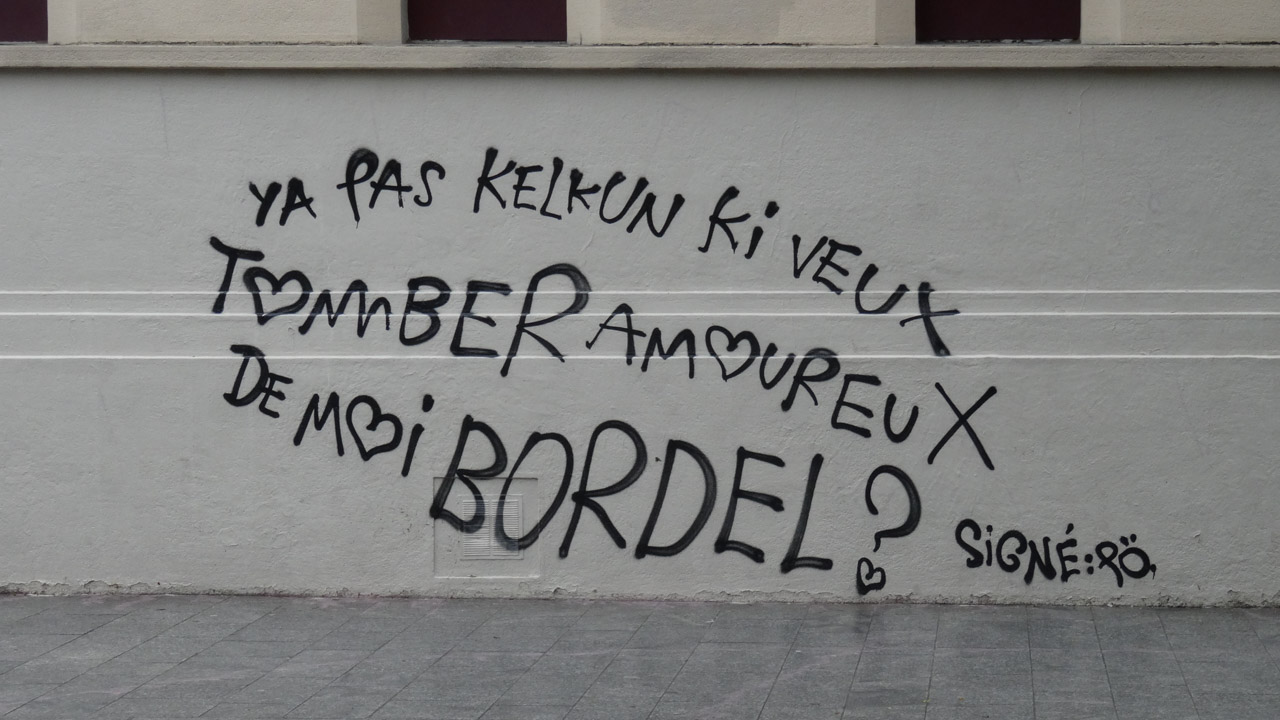 YA PAS KELKUN Ki VEUX
TOMBER AMOUREUX
DE MOi BORDEL ?
SiGNÉ : PÖ